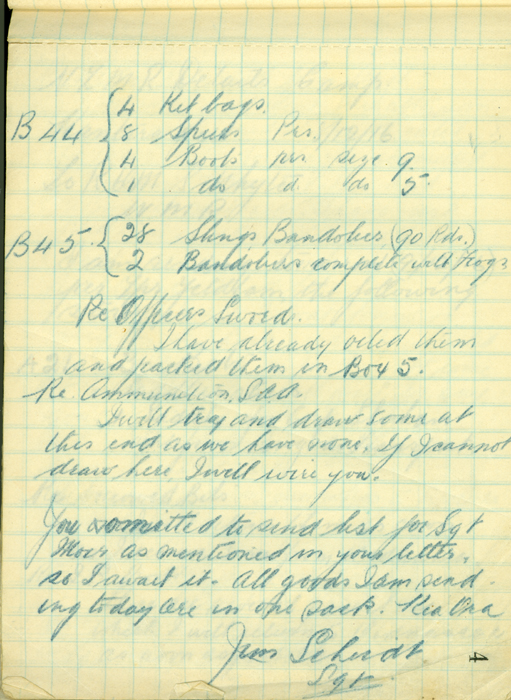 B 44 { 4 Kit bags.
8 Spurs Prs.
4 Boots prs size 9.
1 do d. do 5.
B 45. { 28 Slings Bandoliers (90 Rds.)
2 Bandoliers complete with Frogs
Re Officers Sword.
I have already oiled them
and packed them in Box 5.
Re. Ammunition, SAA.
I will try and draw some at
this end as we have none. If I cannot
draw here, I will wire you.
You omitted to send list for Sgt
Moir as mentioned in your letter,
so I await it. All goods I am send-
ing today are in one sack. Kia Ora
Schmidt
Sgt
4